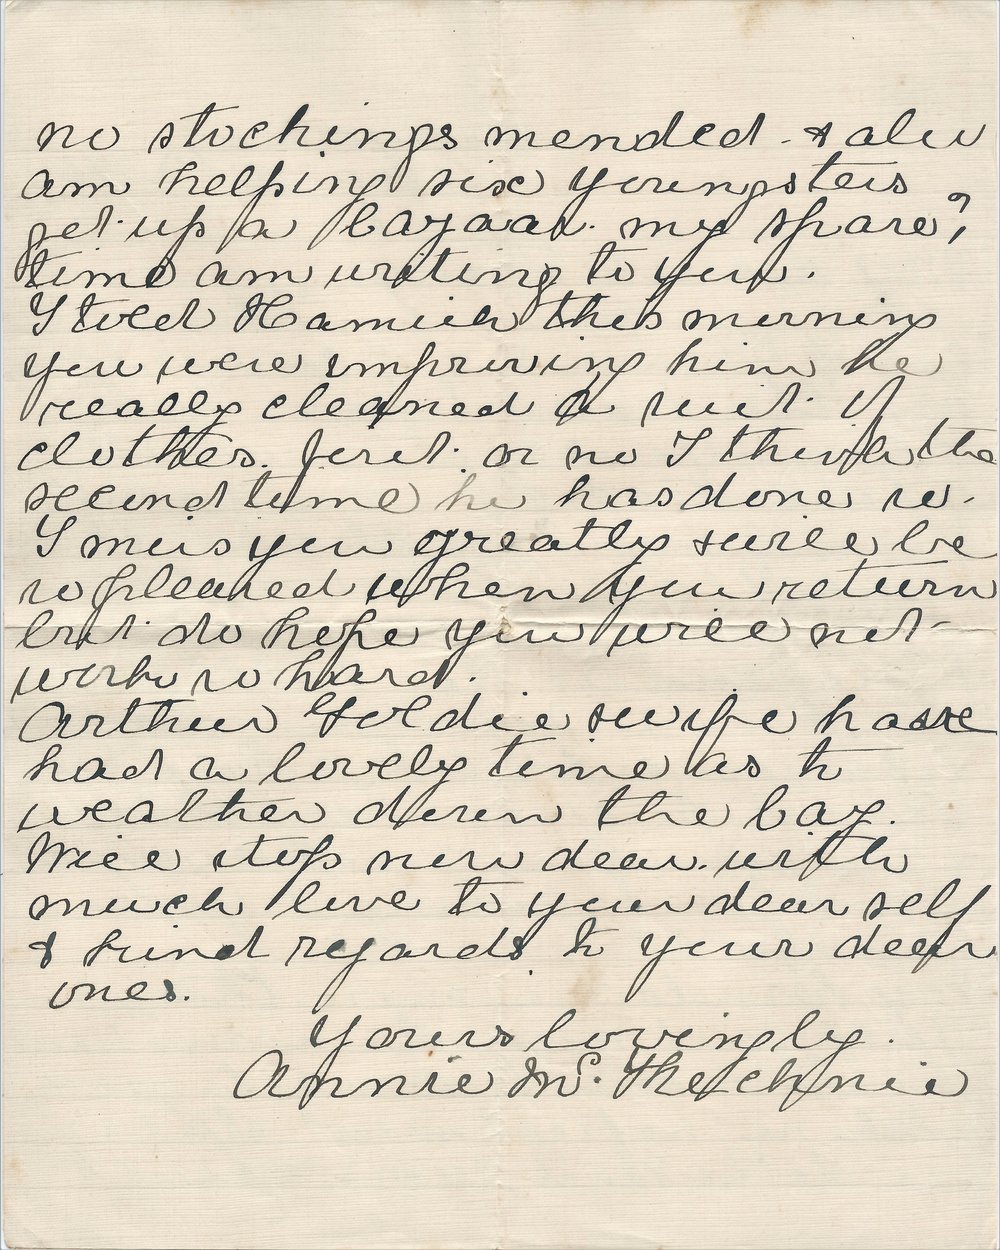 no stockings mended. & also
am helping six youngsters
get up a bazaar. my spare?
time am writing to you.
I told Hamish this morning
you were improving him he
really cleaned a suit of
clothes. first or no I think the
second time he has done so.
I miss you greatly & will be
so pleased when you return
but do hope you will not
work so hard.
Arthur Goldie & wife have
had a lovely time as to
weather down the bay.
Will stop now dear with
much love to your dear self
& kind regards to your dear
ones.
Yours lovingly.
Annie Mc